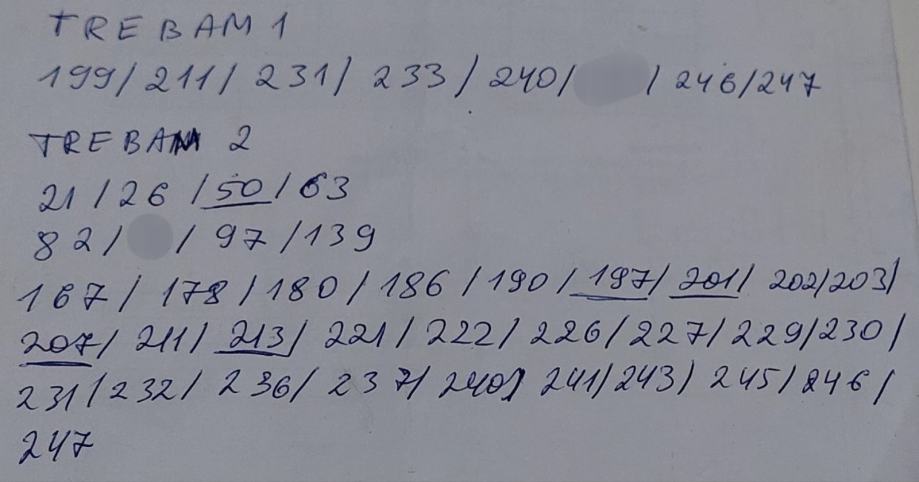 TREBAM 1
199/211/231/233/240/ /246/247
TREBAM 2
21/26/50/63
82/ /97/139
167/178/180/186/190/197/201/202/203/
207/211/213/221/222/226/227/229/230/
231/232/236/237/240/241/243/245/246/
247